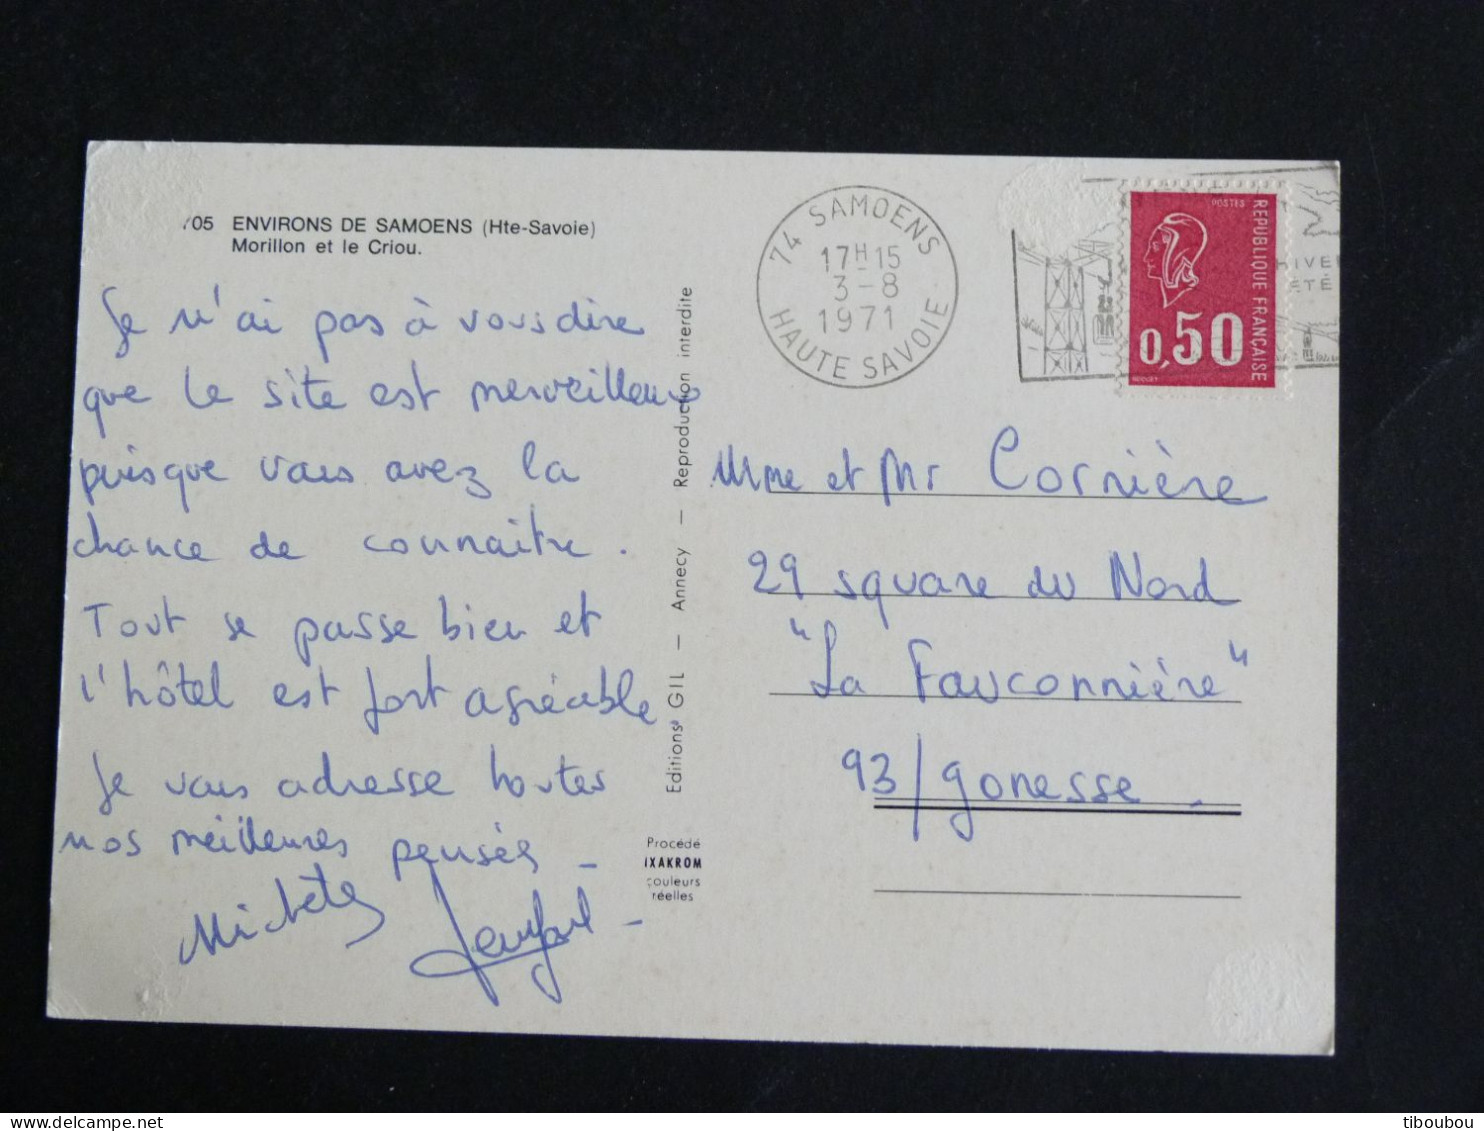 705 ENVIRONS DE SAMOENS (Hte-Savoie)
Morillon et le Criou.
Je n'ai pas à vous dire
que le site est merveilleux
puisque vous avez la
chance de connaitre.
Tout se passe bien et
l'hôtel est fort agréable
Je vous adresse toutes
nos meilleures pensées -
Michèle
Editions GIL — Annecy — Reproduction interdite
Procédé
IXAKROM
couleurs
réelles
74 SAMOENS
17H15
3-8
1971
HAUTE SAVOIE
HIVER
ETÉ
POSTES
REPUBLIQUE FRANÇAISE
0,50
Mme et Mr Cornière
29 square du Nord
"La Fauconnière"
93/gonesse.
tiboubou